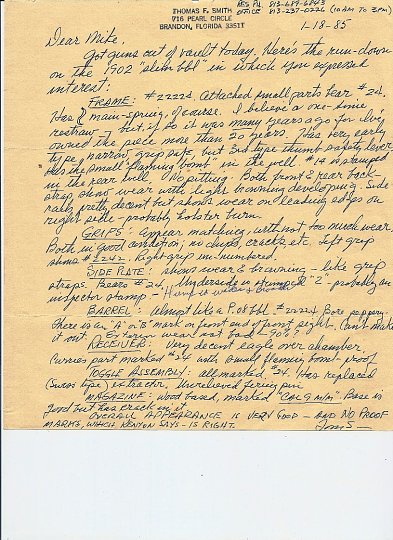 THOMAS F. SMITH
716 PEARL CIRCLE
BRANDON, FLORIDA 33511
RES PH. 813-689-6843
OFFICE 813-237-0226 (10 AM TO 3 PM)
1-18-85
Dear Mike,
Got guns out of vault today. Here's the run-down
on the 1902 "slim bbl" in which you expressed
interest:
FRAME: #22224. Attached small parts tear #24.
Has main-spring, of course. I believe a one-time
reblue - but, if so it was many years ago for I've
owned the piece more than 20 years. Has very early
type, narrow grip safety, but 3rd type thumb safety lever
Has the small "flaming bomb" in the well. #14 is stamped
in the rear well. No pitting. Both front & rear back-
strap show wear with light browning developing. Side
rails pretty decent but shows wear on leading edges on
right side - probably holster burn.
GRIPS: appear matching, without too much wear
Both in good condition; no chips, cracks etc. Left grip
shows #2242. Right grip un-numbered.
SIDE PLATE: shows wear & browning - like grip
straps. Bears #24. Underside is stamped "2" - probably an
inspector stamp -
BARREL: Almost like a P.08 bbl. #22224 Bore peppery.
There is an "A" or "B" mark on front end of front sight. Can't make
it out. Exterior wear not bad - 90%?
RECEIVER: Very decent eagle over chamber
Carries part marked #24 with small flaming bomb proof
TOGGLE ASSEMBLY: all marked 24. Has replaced
(Swiss type) extractor. Unrelieved firing pin
MAGAZINE: wood based, marked "CAL 9 m/m". Base is
good but has crack in it.
OVERALL APPEARANCE IS VERY GOOD - AND NO PROOF
MARKS, WHICH KENYON SAYS - IS RIGHT.
Tom S -